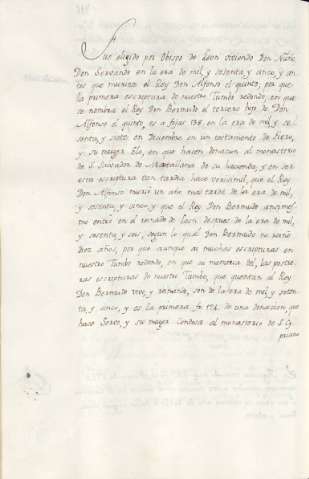 Fue eligido por Obispo de Leon viviendo Don Nuño,
Don Servando en la era de mil, y sesenta, y cinco, y an-
tes que muriese el Rey Don Alfonso el quinto, por que
la primera escriptura de nuestro Tumbo redondo, en que
se nombra el Rey Don Bermudo el tercero hijo de Don
Alfonso el quinto, es a fojas 138. en la era de mil, y se-
senta, y siete en Diciembre en un testamento de
y su muger en que hacen donacion al monasterio
de S. Salvador de de su hacienda, y en ser
esta escriptura tan tardia hace verisimil, que el Rey
Don Alfonso murió un año mas tarde de la era de mil,
y sesenta, y cinco, y que el Rey Don Bermudo
mo entró en el reinado de Leon despues de la era de mil,
y sesenta, y seis, segun lo qual Don Bermudo no reinó
diez años, por que aunque ai muchas escripturas en
nuestro Tumbo redondo, en que su memoria del, las postre-
ras escripturas de nuestro Tumbo, que quentan al Rey
Don Bermudo vivo, y reinando, son de la era de mil, y seten-
ta, y cinco, y es la primera fo. 174. de una donacion que
hace y su muger al monasterio de S. Cy-
priano